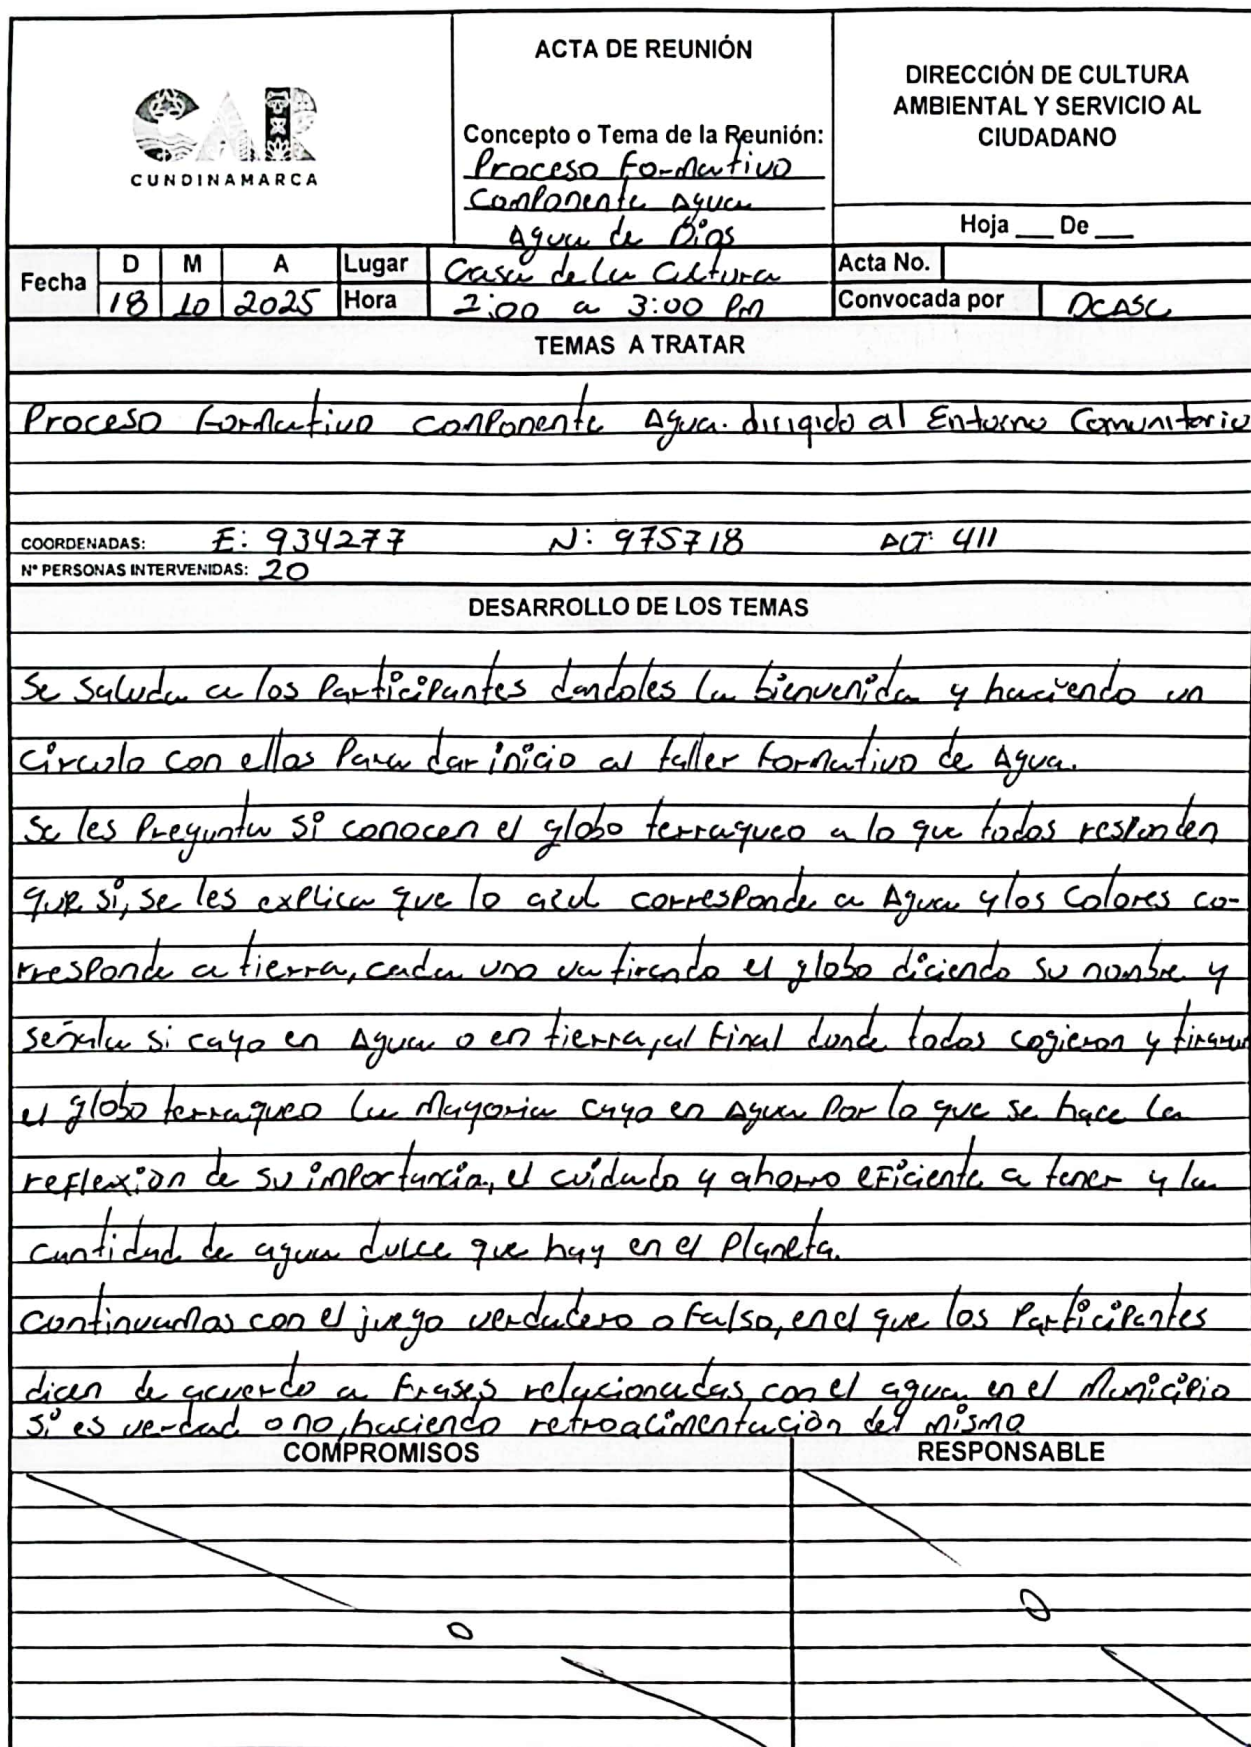 CAR
CUNDINAMARCA
ACTA DE REUNIÓN
Concepto o Tema de la Reunión:
Proceso Formativo
Componente Agua
Agua de Dios
DIRECCIÓN DE CULTURA
AMBIENTAL Y SERVICIO AL
CIUDADANO
Hoja ___ De ___
Fecha D M A Lugar Casa de la Cultura Acta No.
18 10 2025 Hora 2:00 a 3:00 Pm Convocada por DCASC
TEMAS A TRATAR
Proceso Formativo componente Agua. dirigido al Entorno Comunitario
COORDENADAS: E: 934277 N: 975718 ALT: 411
N° PERSONAS INTERVENIDAS: 20
DESARROLLO DE LOS TEMAS
Se saluda a los Participantes dandoles la bienvenida y haciendo un
círculo con ellos Para dar inicio al taller Formativo de Agua.
Se les Pregunta si conocen el globo terraqueo a lo que todos responden
que si, se les explica que lo azul corresponde a Agua y los Colores co-
rresponde a tierra, cada uno va tirando el globo diciendo su nombre y
señala si cayo en Agua o en tierra, al Final donde todos cogieron y tiraron
el globo terraqueo la Mayoria cayo en Agua Por lo que se hace la
reflexion de su importancia, el cuidado y ahorro eficiente a tener y la
cantidad de agua dulce que hay en el Planeta.
continuamos con el juego verdadero o Falso, en el que los Participantes
dicen de acuerdo a Frases relacionadas con el agua en el Municipio
si es verdad o no, haciendo retroalimentación del mismo
COMPROMISOS RESPONSABLE